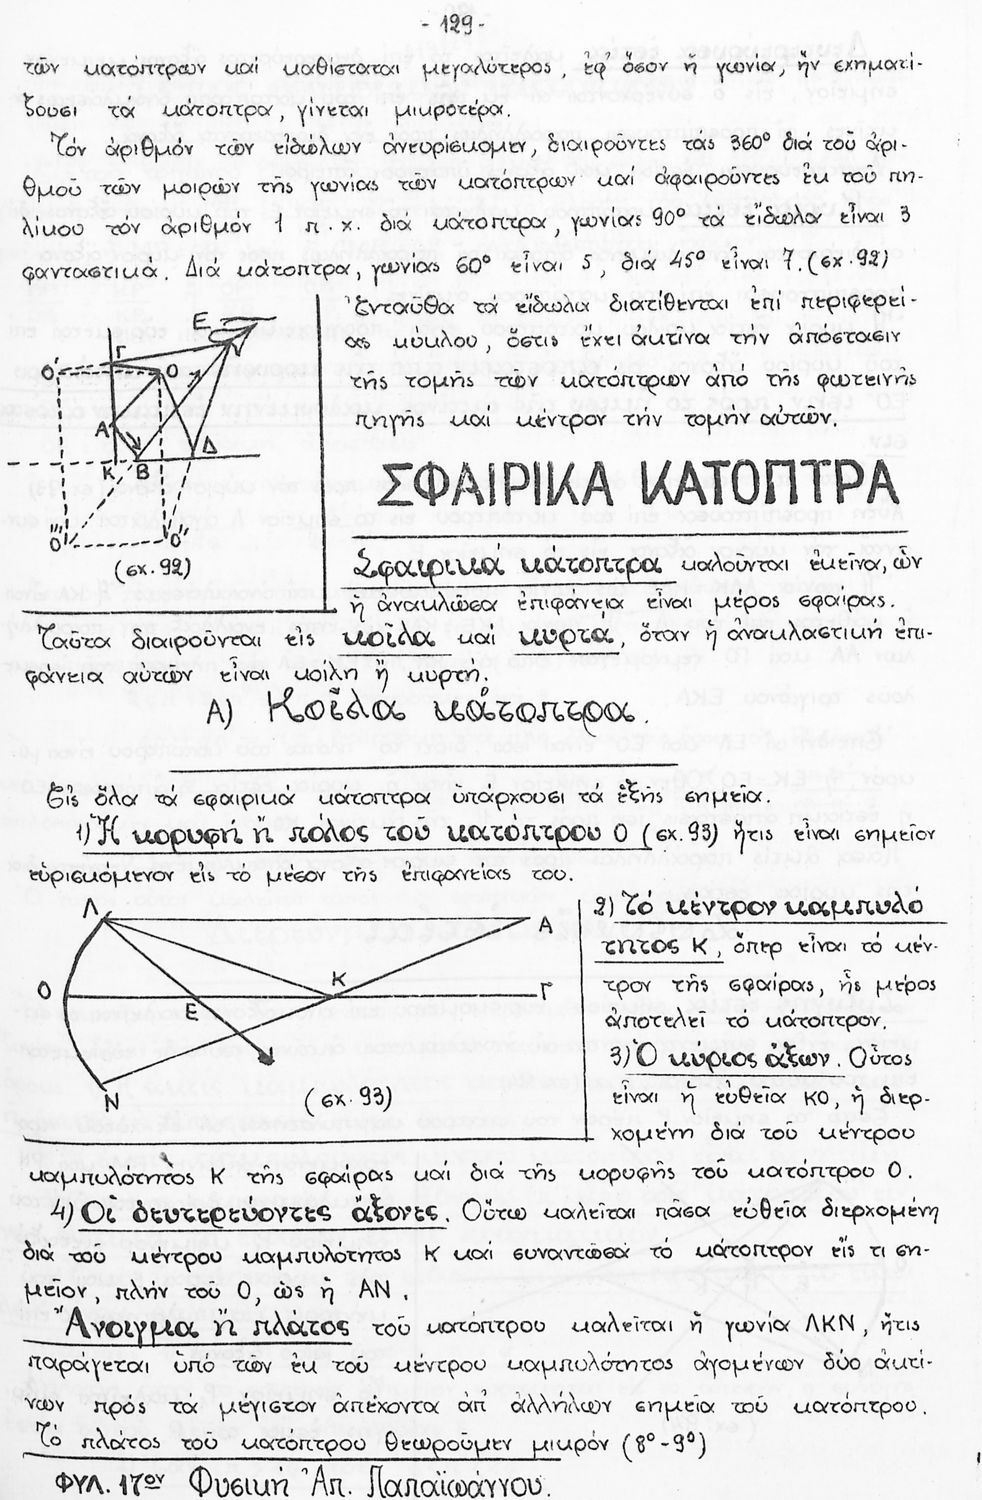 - 129 -
τῶν κατόπτρων καί καθίσταται μεγαλύτερος, ἐφ' ὅσον ἡ γωνία, ἥν σχηματί-
ζουσι τά κάτοπτρα, γίνεται μικροτέρα.
Τόν ἀριθμόν τῶν εἰδώλων ἀνευρίσκομεν, διαιροῦντες τάς 360° διά τοῦ ἀρι-
θμοῦ τῶν μοιρῶν τῆς γωνίας τῶν κατόπτρων καί ἀφαιροῦντες ἐκ τοῦ πη-
λίκου τόν ἀριθμόν 1 π.χ. διά κάτοπτρα, γωνίας 90° τά εἴδωλα εἶναι 3
φανταστικά. Διά κάτοπτρα, γωνίας 60° εἶναι 5, διά 45° εἶναι 7. (σχ. 92)
Ἐνταῦθα τά εἴδωλα διατίθενται ἐπί περιφερεί-
ας κύκλου, ὅστις ἔχει ἀκτῖνα τήν ἀπόστασιν
τῆς τομῆς τῶν κατόπτρων ἀπό τῆς φωτεινῆς
πηγῆς καί κέντρον τήν τομήν αὐτῶν.
Ε
Γ
Ο'
Ο
Α
Δ
Κ
Β
Ο'''
Ο''
(σχ. 92)
ΣΦΑΙΡΙΚΑ ΚΑΤΟΠΤΡΑ
Σφαιρικά κάτοπτρα καλοῦνται ἐκεῖνα, ὧν
ἡ ἀνακλῶσα ἐπιφάνεια εἶναι μέρος σφαίρας.
Ταῦτα διαιροῦνται εἰς κοῖλα καί κυρτά, ὅταν ἡ ἀνακλαστική ἐπι-
φάνεια αὐτῶν εἶναι κοίλη ἤ κυρτή.
Α) Κοῖλα κάτοπτρα.
Εἰς ὅλα τά σφαιρικά κάτοπτρα ὑπάρχουσι τά ἑξῆς σημεῖα.
1) Ἡ κορυφή ἤ πόλος τοῦ κατόπτρου Ο (σχ. 93) ἥτις εἶναι σημεῖον
εὑρισκόμενον εἰς τό μέσον τῆς ἐπιφανείας του.
Λ
Α
Ο
Κ
Γ
Ε
Ν
(σχ. 93)
2) Τό κέντρον καμπυλό
τητος Κ, ὅπερ εἶναι τό κέν-
τρον τῆς σφαίρας, ἧς μέρος
ἀποτελεῖ τό κάτοπτρον.
3) Ὁ κύριος ἄξων. Οὗτος
εἶναι ἡ εὐθεῖα ΚΟ, ἡ διερ-
χομένη διά τοῦ κέντρου
καμπυλότητος Κ τῆς σφαίρας καί διά τῆς κορυφῆς τοῦ κατόπτρου Ο.
4) Οἱ δευτερεύοντες ἄξονες. Οὕτω καλεῖται πᾶσα εὐθεῖα διερχομένη
διά τοῦ κέντρου καμπυλότητος Κ καί συναντῶσα τό κάτοπτρον εἴς τι ση-
μεῖον, πλήν τοῦ Ο, ὡς ἡ ΑΝ.
Ἄνοιγμα ἤ πλάτος τοῦ κατόπτρου καλεῖται ἡ γωνία ΛΚΝ, ἥτις
παράγεται ὑπό τῶν ἐκ τοῦ κέντρου καμπυλότητος ἀγομένων δύο ἀκτί-
νων πρός τά μέγιστον ἀπέχοντα ἀπ' ἀλλήλων σημεῖα τοῦ κατόπτρου.
Τό πλάτος τοῦ κατόπτρου θεωροῦμεν μικρόν (8°-9°)
ΦΥΛ. 17ον Φυσική Ἀπ. Παπαϊωάννου.